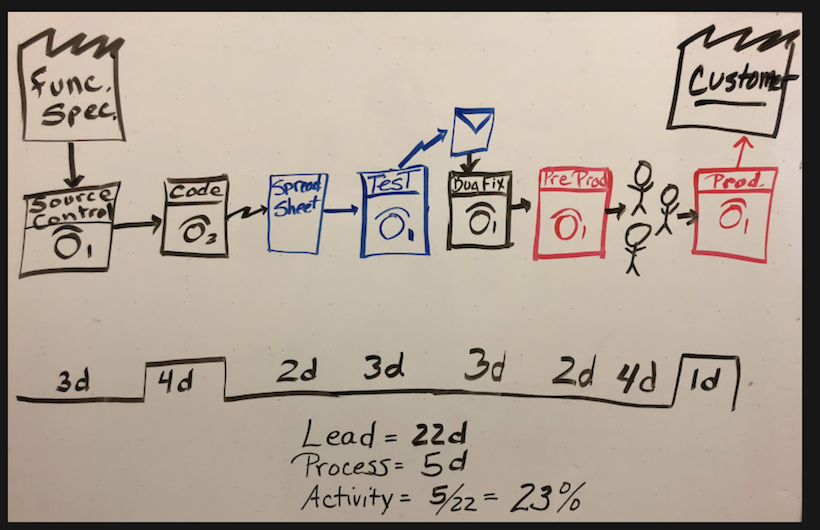 Func.
Spec.
Customer
Source
Control
1
Code
3
Spread
Sheet
Test
1
Bug Fix
1
Pre Prod
1
Prod.
1
3d
4d
2d
3d
3d
2d
4d
1d
Lead = 22d
Process = 5d
Activity = 5/22 = 23%